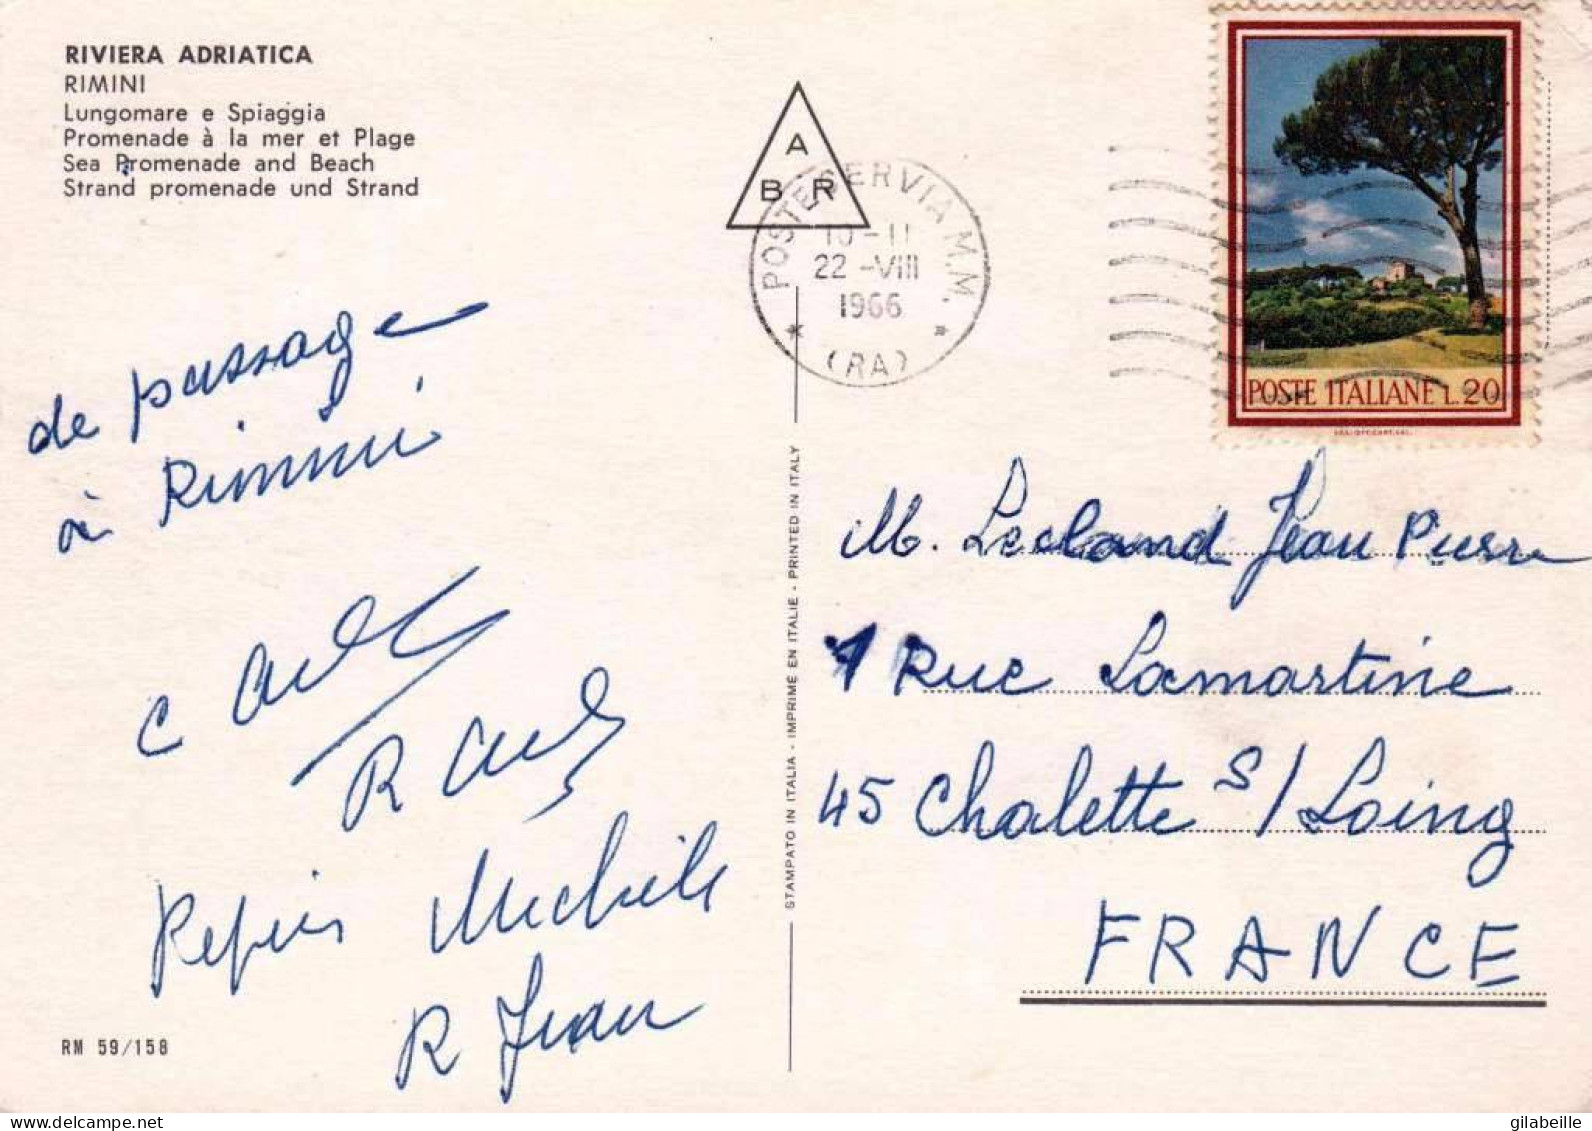 RIVIERA ADRIATICA
RIMINI
Lungomare e Spiaggia
Promenade à la mer et Plage
Sea Promenade and Beach
Strand promenade und Strand
A
B R
POSTE CERVIA M.M.
22 -VIII
1966
(RA)
POSTE ITALIANE L.20
de passage
à Rimini
R
Michèle
R Jean
RM 59/158
STAMPATO IN ITALIA - IMPRIMÉ EN ITALIE - PRINTED IN ITALY
M. Lecland Jean Pierre
1 Rue Lamartine
45 Chalette s/ Loing
FRANCE
gilabeille